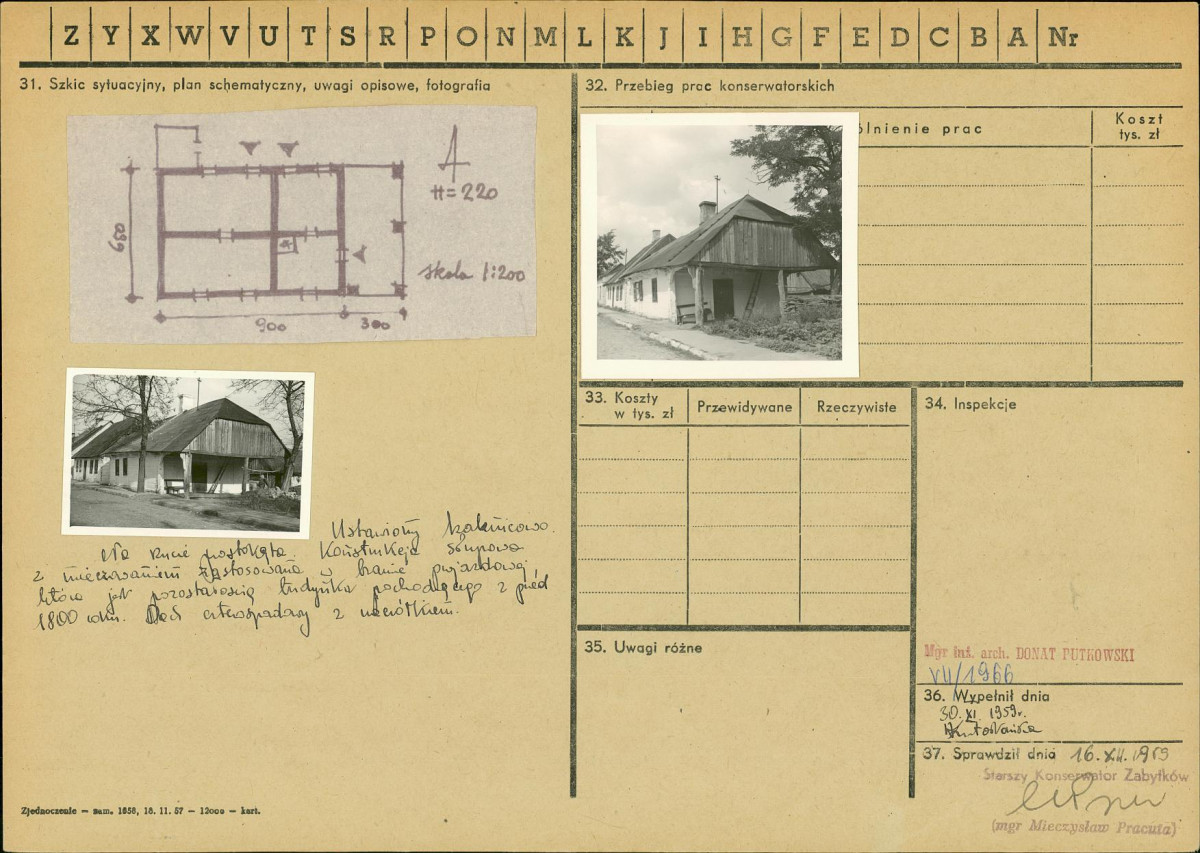 Z Y X W V U T S R P O N M L K J I H G F E D C B A Nr
31. Szkic sytuacyjny, plan schematyczny, uwagi opisowe, fotografia
H = 220
skala 1:200
650
900
300
Ustawiony kalenicowo.
Na rzucie prostokąta. Konstrukcja słupowa
z mieczowaniem zastosowana w bramie przejazdowej
która jest pozostałością budynku pochodzącego z przed
1800 roku. Dach czterospadowy z naczółkiem.
Zjednoczenie — zam. 1658, 18. 11. 57 — 12000 — kart.
32. Przebieg prac konserwatorskich
lnienie prac
Koszt
tys. zł
33. Koszty
w tys. zł
Przewidywane
Rzeczywiste
34. Inspekcje
35. Uwagi różne
Mgr inż. arch. DONAT PUTKOWSKI
VII/1966
36. Wypełnił dnia
30. XI 1959r.
37. Sprawdził dnia 16. XII. 1959
Starszy Konserwator Zabytków
(mgr Mieczysław Pracuta)